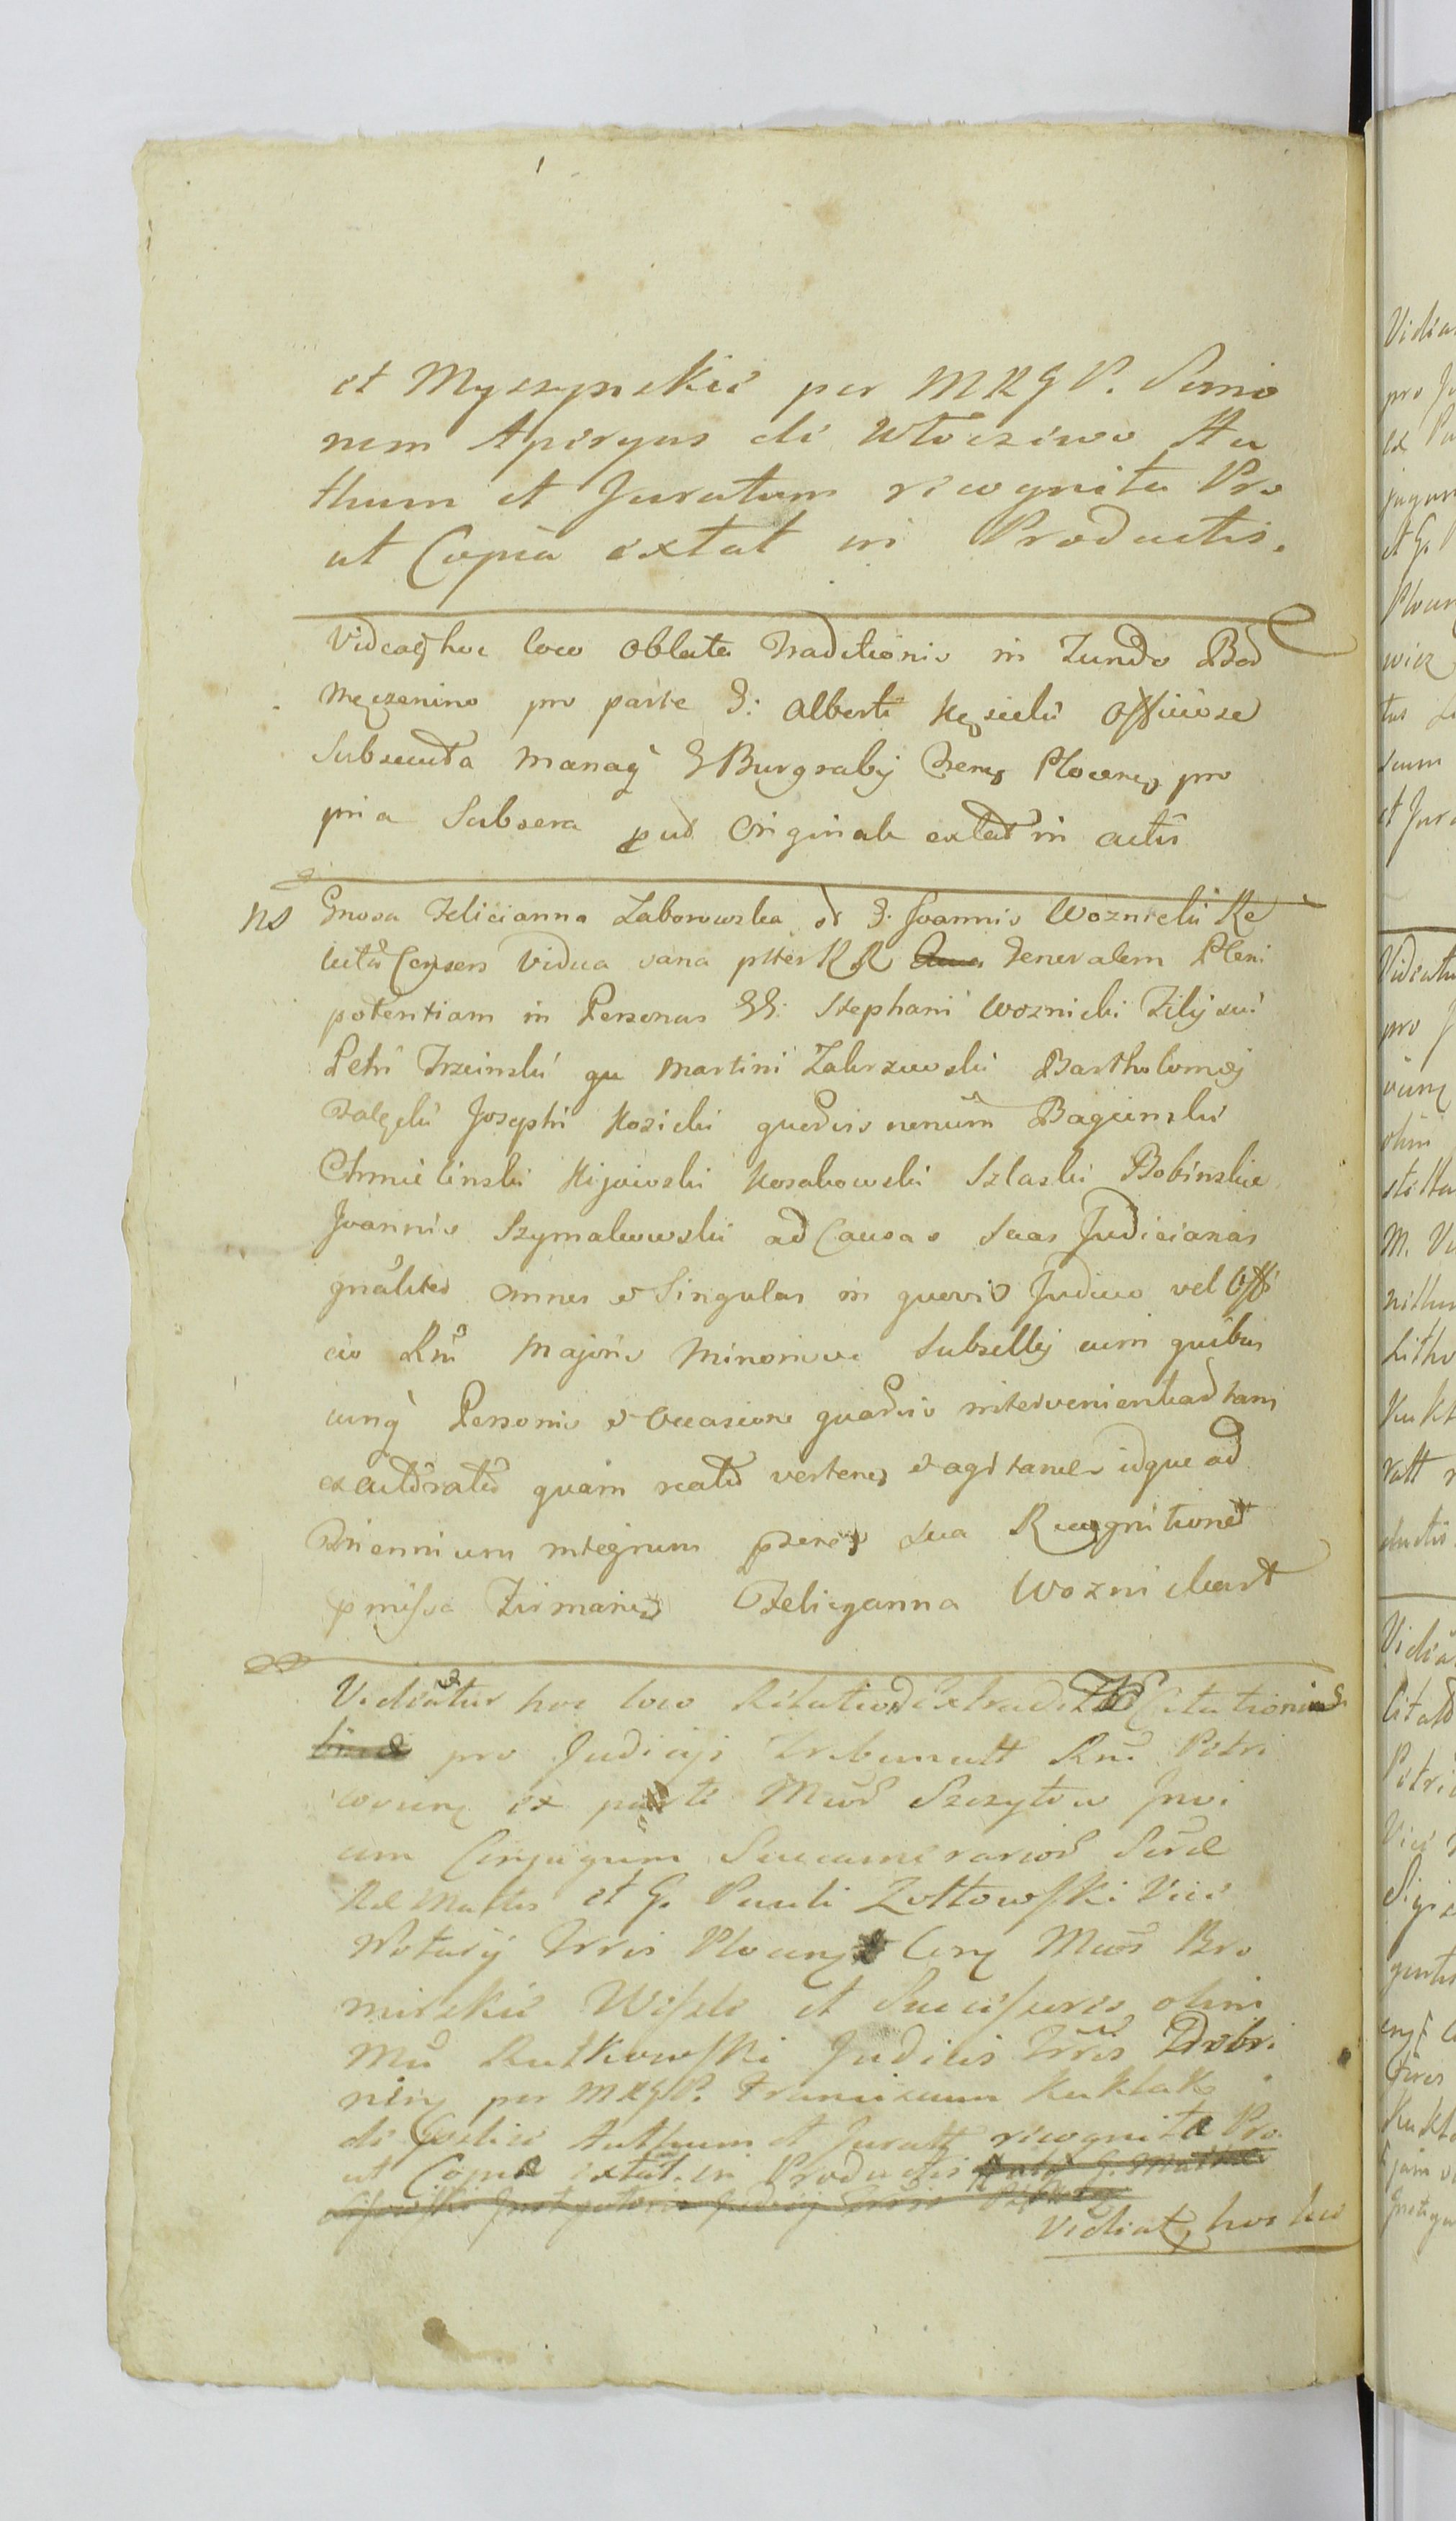 et Myszynskie per MRGP. Simio
nem Apiryus de Włocziwo Au
thum et Juratum recognita Pro
ut Copia extat in Productis.
Videaꝗ hoc loco Oblata Traditionis in Fundo Bod
Męczenino pro parte G: Alberti Kęsicki Officiose
Subsecuta Manaꝗ G Burgrabij Plocens pro
pria Subscra put Originale extat in actis
NS Gnosa Felicianna Zaborowska et G. Joannis Woznicki Re
licta Conjers Vidua sana ptter RR Generalem Pleni
potentiam in Personas GG: Stephani Woznicki Filij sui
Petri Trzcinski Martini Zakrzewski Bartholomej
Załęcki Josephi Kosicki Baginski
Chmielinski Kijewski Kosakowski Szlaski Bobinskie
Joannis Szymakowski ad Causas suas Judiciarias
gnaliter omnes et Singulas in quovis Judicio vel Offi
cio Rni Majoris Minorisve Subsellij cum quibus
cunꝗ Personis et Occasione quavis intervenientiad tam
ex actoratu quam reatu verten et agitanda idque ad
Triennium integrum sua Recognitione
pmissa Firman Felicyanna Woznickast
Videatur hoc loco Relatio Extradit Citationis
pro Judicijs Tribunalt Rni Petri
coven ex parte Mcod Szczytow Invi
cem Conjugum Succamerariod
et G. Pauli Zołtowski Vice
Notarij Trris Plocen Cerę Mcos Bro
mirskie Wisle et Successores olim
Mci Rutkowski Judicis Trris Dobri
nen per MRGP. Franciscum Kuklak
de Goslice Authum et Juratt recognita Pro
ut Copia extat in Productis
Videat hoc loco